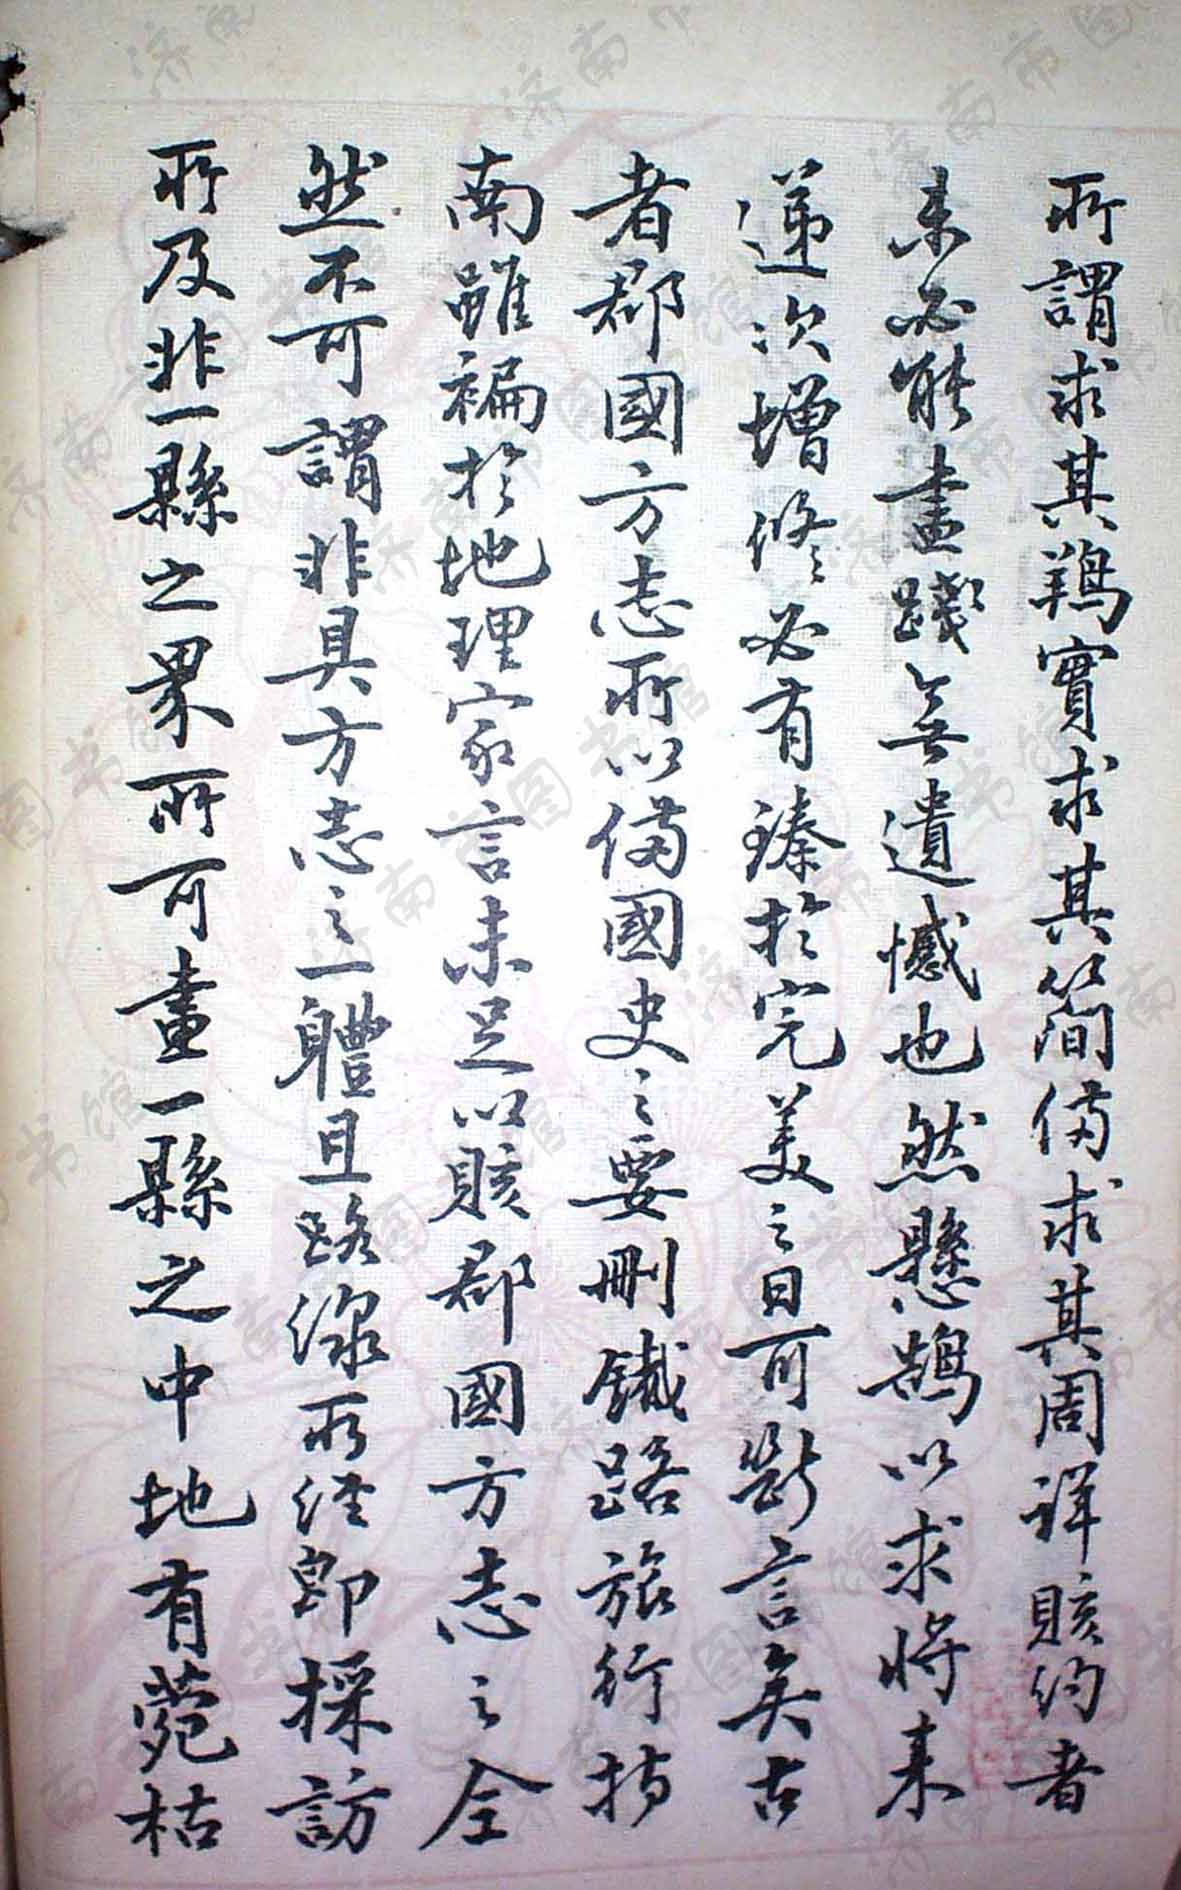 所謂求其鶽實求其簡備求其周詳賅約者
未必能畫踐無遺憾也然懸鵠以求將来
遞次增修必有臻於完美之日可斷言矣古
者郡國方志所以備國史之要刪鐵路旅行指
南雖褊於地理家言未足以賅郡國方志之全
然不可謂非具方志之一體且路線所经即採訪
所及非一縣之界所可畫一縣之中地有菀枯
济南市图书馆